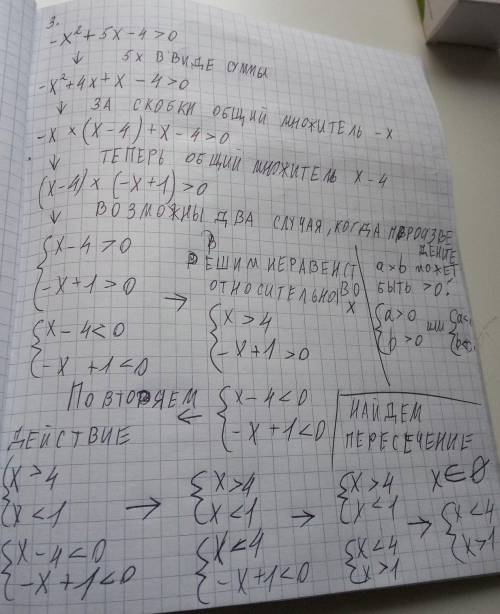 3.
-x²+5x-4>0
↓ 5x В ВИДЕ СУММЫ
-x²+4x+x-4>0
↓ ЗА СКОБКИ ОБЩИЙ МНОЖИТЕЛЬ -x
-x×(x-4)+x-4>0
↓ ТЕПЕРЬ ОБЩИЙ МНОЖИТЕЛЬ x-4
(x-4)×(-x+1)>0
↓ ВОЗМОЖНЫ ДВА СЛУЧАЯ, КОГДА ПРОИЗВЕ
ДЕНИЕ
a×b МОЖЕТ
БЫТЬ >0:
{a>0
b>0 ИЛИ {a<
b<
{x-4>0
-x+1>0
{x-4<0
-x+1<0
→
РЕШИМ НЕРАВЕНСТ
ВО
ОТНОСИТЕЛЬНО
x
{x>4
-x+1>0
{x-4<0
-x+1<0
← ПОВТОРЯЕМ
ДЕЙСТВИЕ
НАЙДЕМ
ПЕРЕСЕЧЕНИЕ
{x>4
x<1
{x-4<0
-x+1<0
→
{x>4
x<1
{x<4
-x+1<0
→
{x>4
x<1
{x<4
x>1
→
x∈Ø
{x<4
x>1